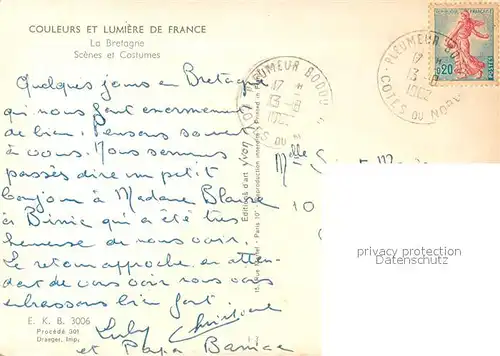 COULEURS ET LUMIÈRE DE FRANCE
La Bretagne
Scènes et Costumes
Quelques jours en Bretagne
qui nous font énormément
de bien. Pensons souvent
à vous. Nous sommes
passés dire un petit
bonjour à Madame
à Binic qui a été très
heureuse de nous voir.
Le retour approche en atten-
dant de vous voir nous vous
embrassons bien fort.
Christiane
et Papa
E. K. B. 3006
Procédé 301
Draeger, Imp.
Editions d'art yvon
Paris 10
PLEUMEUR BODOU
17 H
13 -
1962
CÔTES DU NORD
PLEUMEUR
17 H
13 -
1962
CÔTES DU NORD
0,20
POSTES
Melle
10
privacy protection
Datenschutz